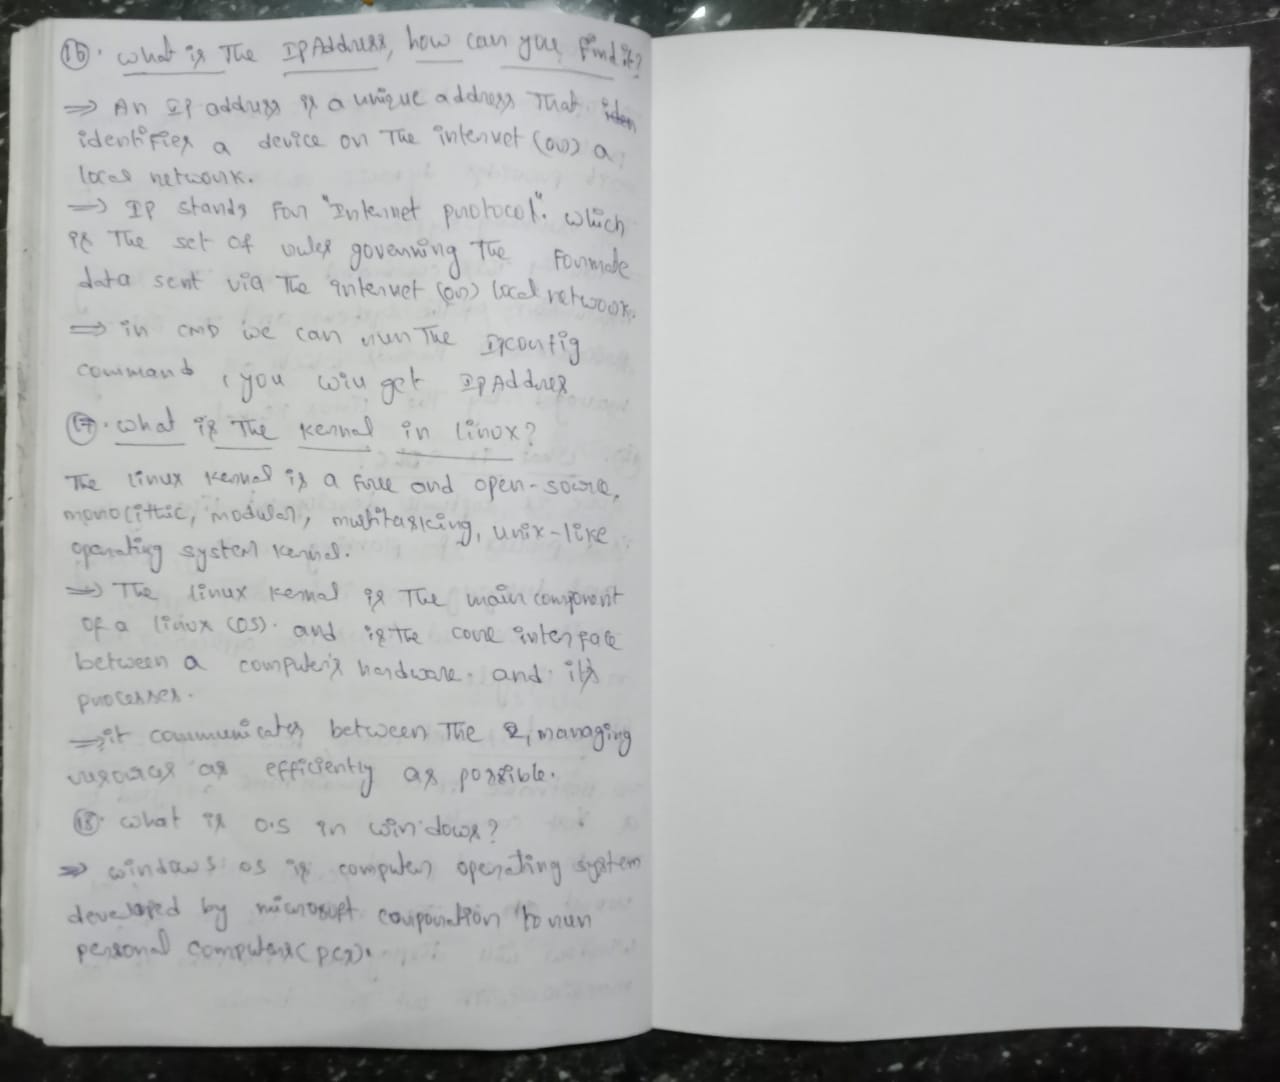 16. what is The IP Address, how can you find it?
⇒ An IP address is a unique address That iden
identifies a device on The internet (or) a
local network.
⇒ IP stands For "Internet protocol". which
is The set of rules governing The Formate
data sent via The internet (or) local network.
⇒ in CMD we can run The Ipconfig
command, you will get IP Address
17. what is The kernal in linux?
The linux kernal is a free and open-source,
monolithic, modular, multitasking, unix-like
operating system kernal.
⇒ The linux kernal is The main component
of a linux (OS). and is the core interface
between a computer's hardware. and its
processes.
⇒ it communicates between The 2, managing
resources as efficiently as possible.
18. what is O.S in windows?
⇒ windows OS is computer operating system
developed by microsoft corporation to run
personal computers (pcs).